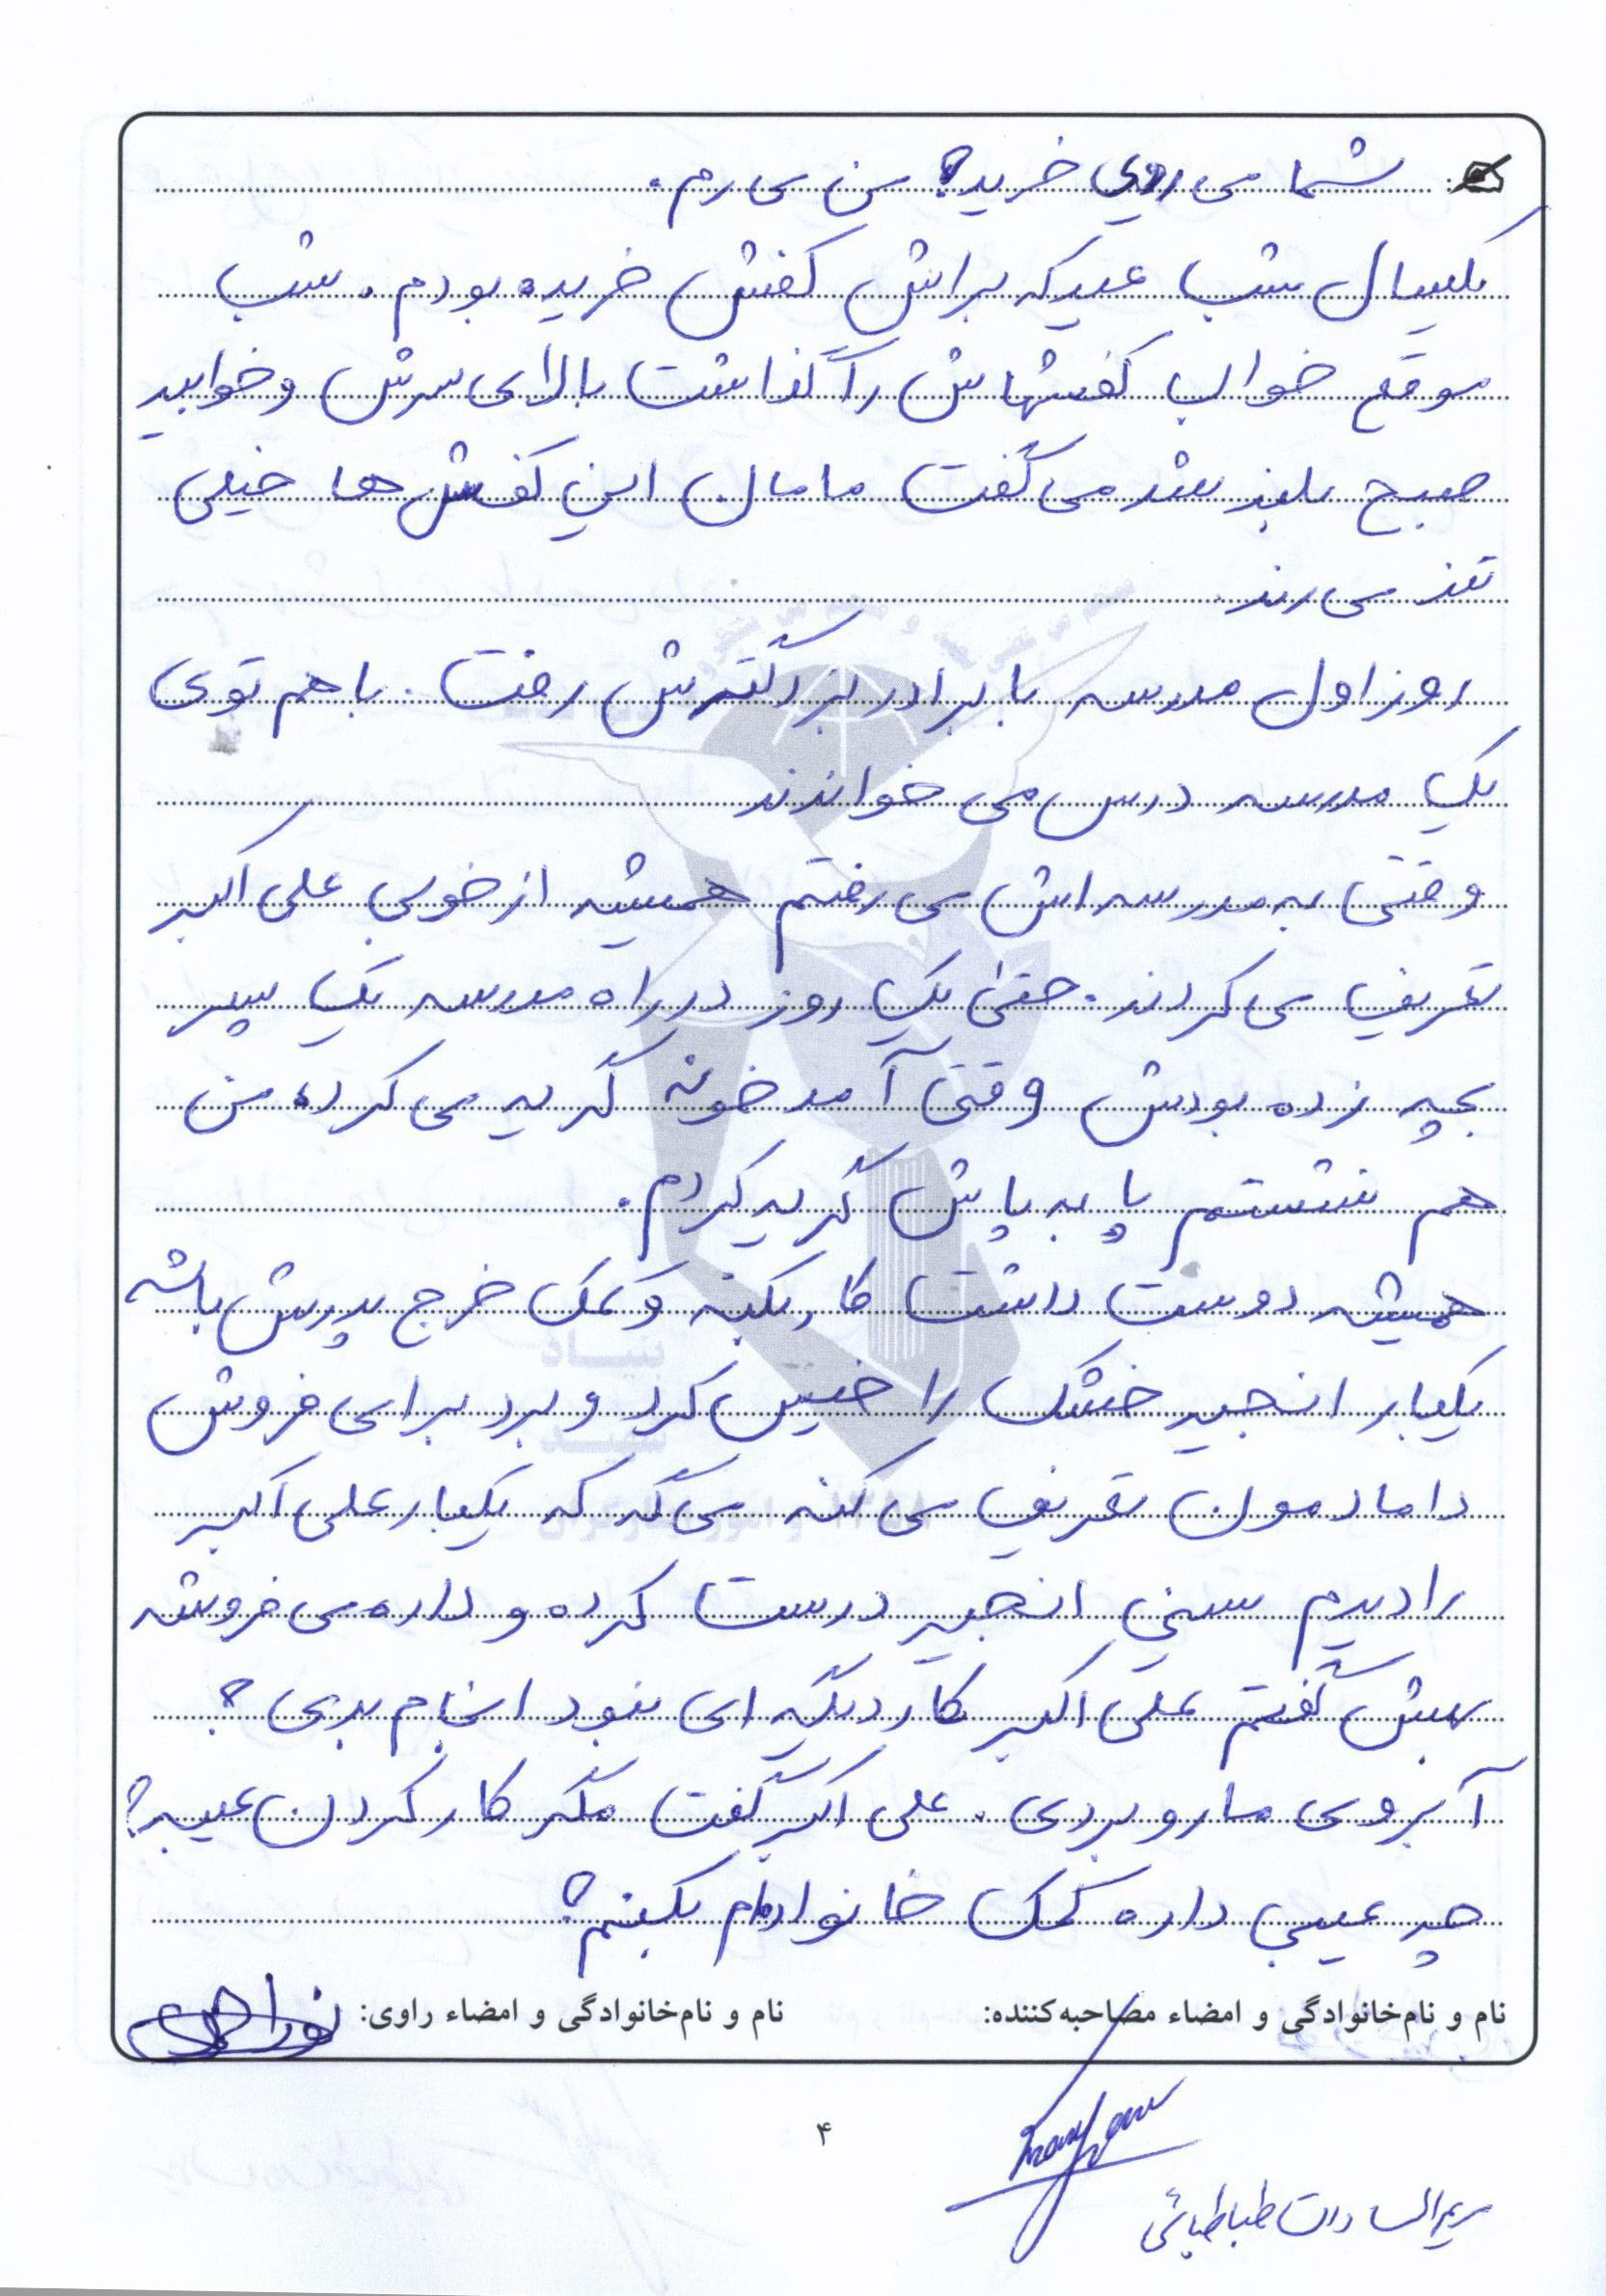 شما می روی خرید؟ من می رم.
یکسال شب عید که براش کفش خریده بودم. شب
موقع خواب کفشهاش را گذاشت بالای سرش و خوابید
صبح بلند شد می گفت مامان این کفش ها خیلی
تند می رند
روز اول مدرسه با برادر بزرگترش رفت. با هم توی
یک مدرسه درس می خواندند
وقتی به مدرسه اش می رفتم همیشه از خوبی علی اکبر
تعریف می کردند. حتی یک روز در راه مدرسه یک پسر
بچه زده بودش وقتی آمد خونه گریه می کرد، من
هم نشستم پا به پاش گریه کردم.
همیشه دوست داشت کار بکنه و کمک خرج پدرش باشه
یکبار انجیر خشک را خیس کرد و برد برای فروش
دامادمون تعریف می کنه می گه که یکبار علی اکبر
را دیدم سینی انجیر درست کرده و داره می فروشه
بهش گفتم علی اکبر کار دیگه ای نبود انجام بدی؟
آبروی ما رو بردی. علی اکبر گفت مگر کار کردن عیبه؟
چه عیبی داره کمک خانواده ام بکنم؟
نام و نام‌خانوادگی و امضاء مصاحبه‌کننده: نام و نام‌خانوادگی و امضاء راوی:
۴
مریم السادات طباطبائی
بنیاد
شهید